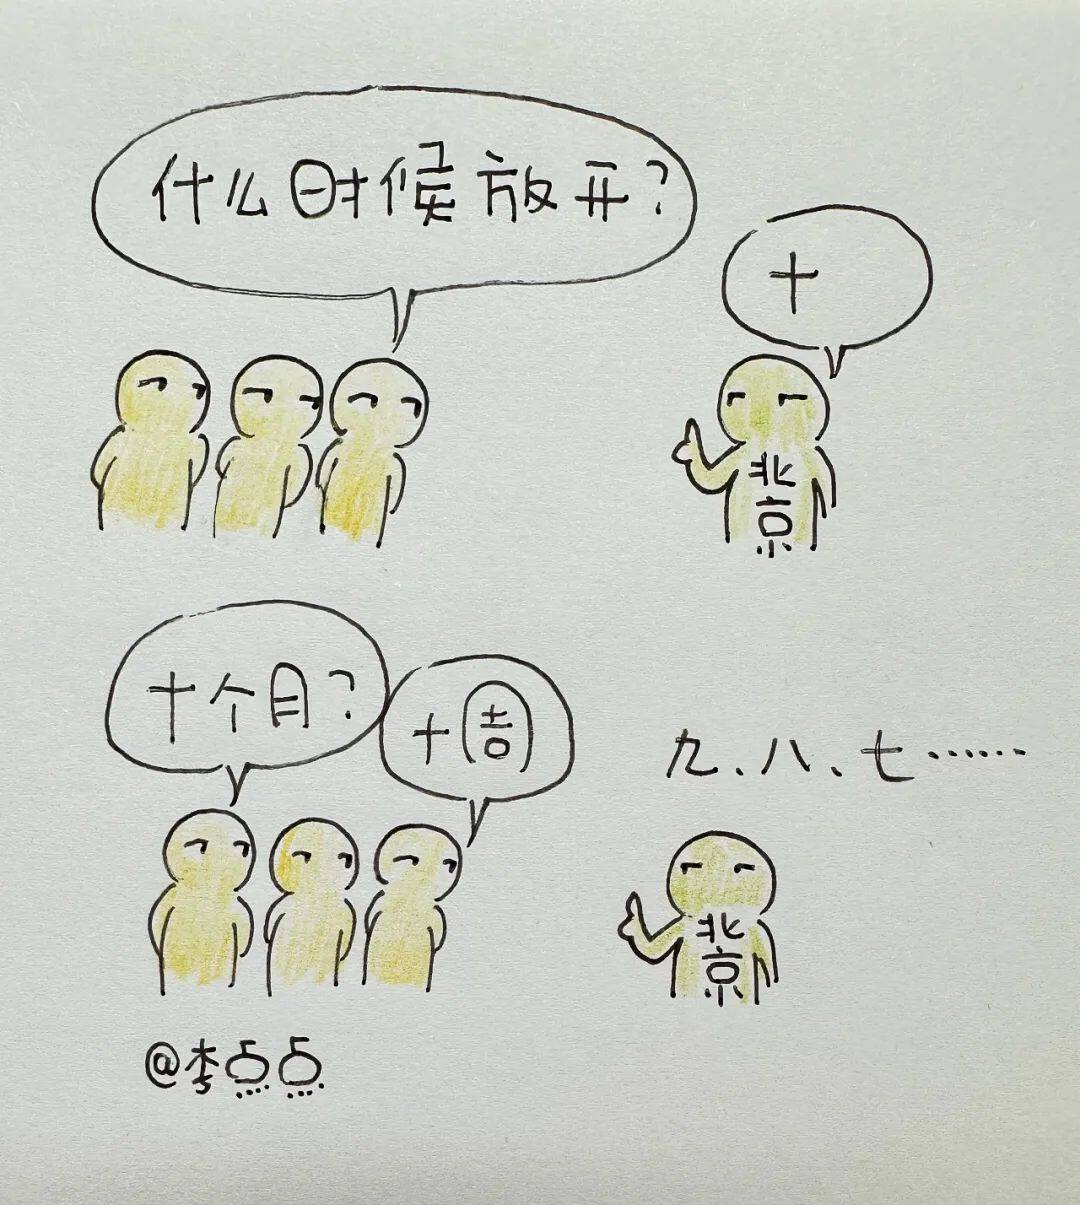 什么时候放开?
十
北
京
十个月?
十周
九、八、七……
北
京
@李点点